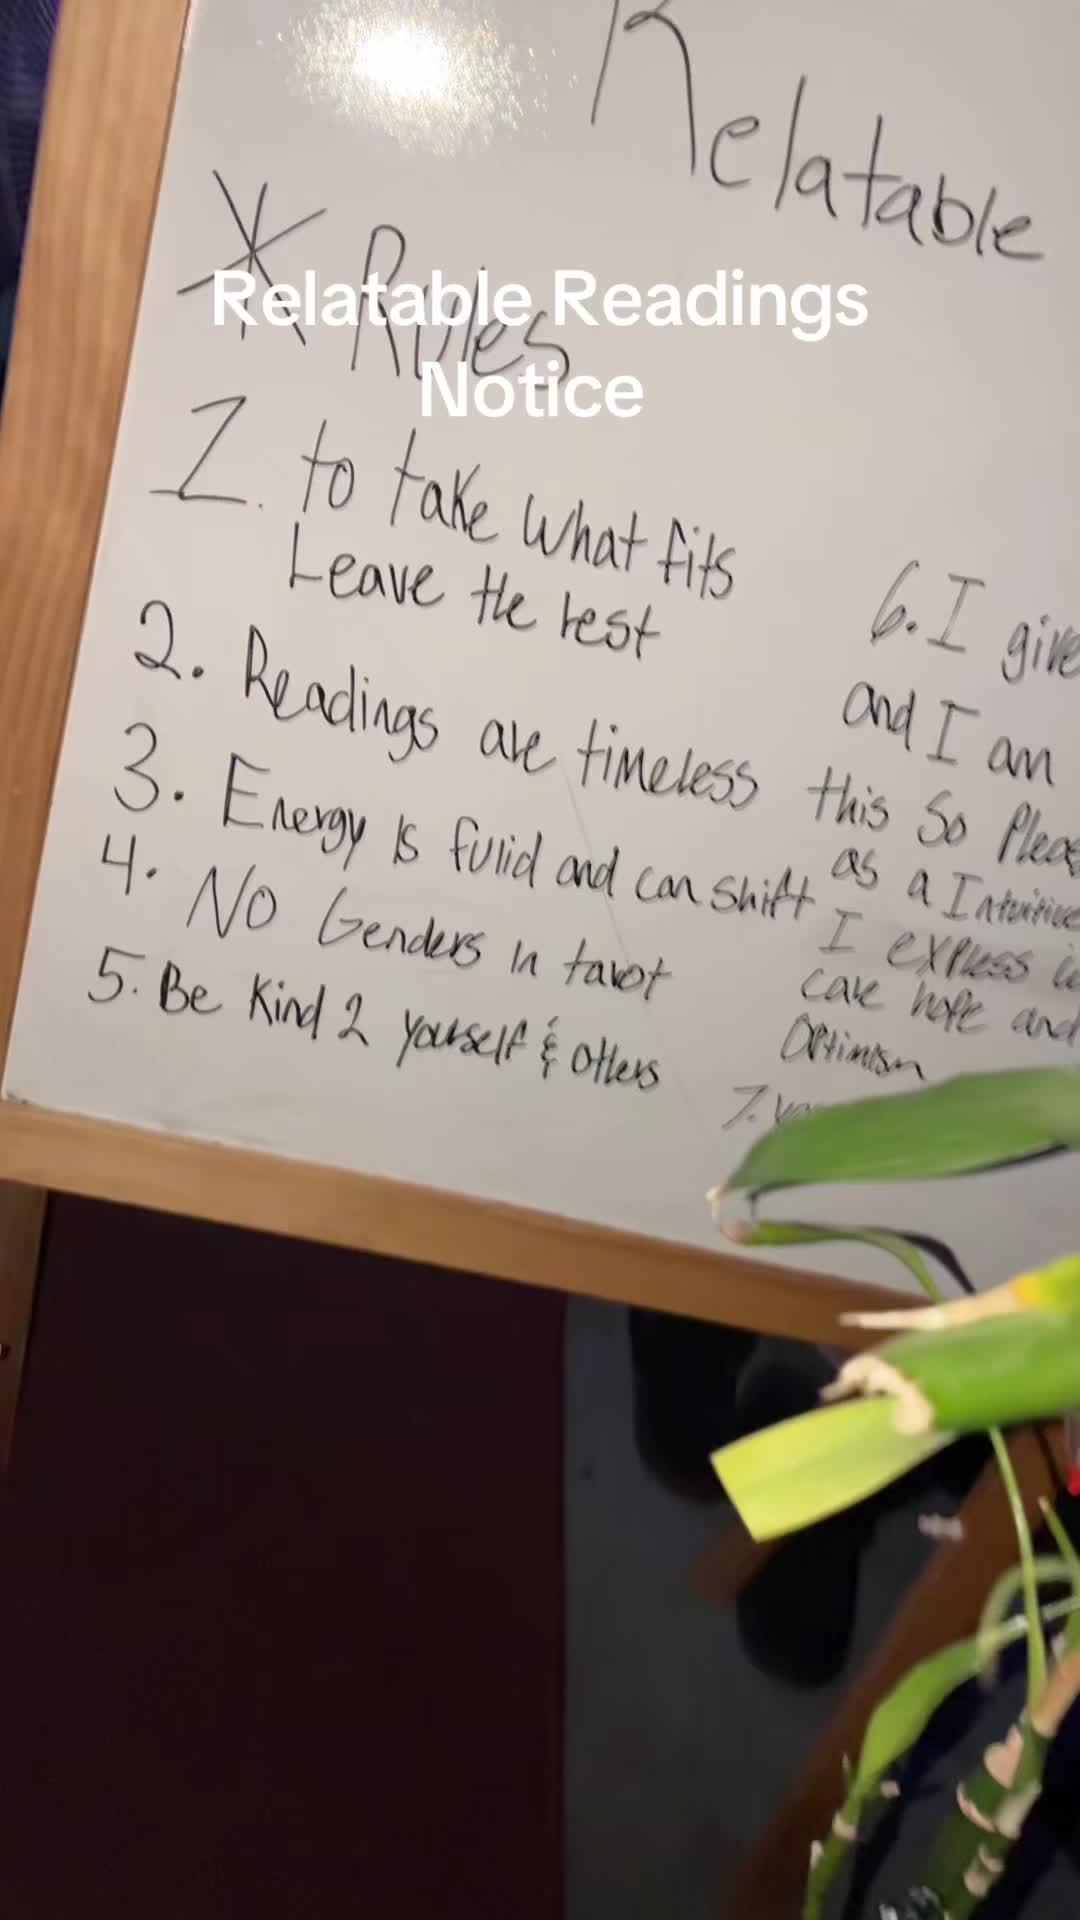 Relatable
* Rules
Relatable Readings
Notice
1. to take what fits
Leave the rest
2. Readings are timeless
3. Energy is fulid and can shift
4. No Genders in tarot
5. Be Kind 2 yourself & others
6. I give
and I am
this So Pleas
as a Intuitive
I express
care hope and
Optimism
7.